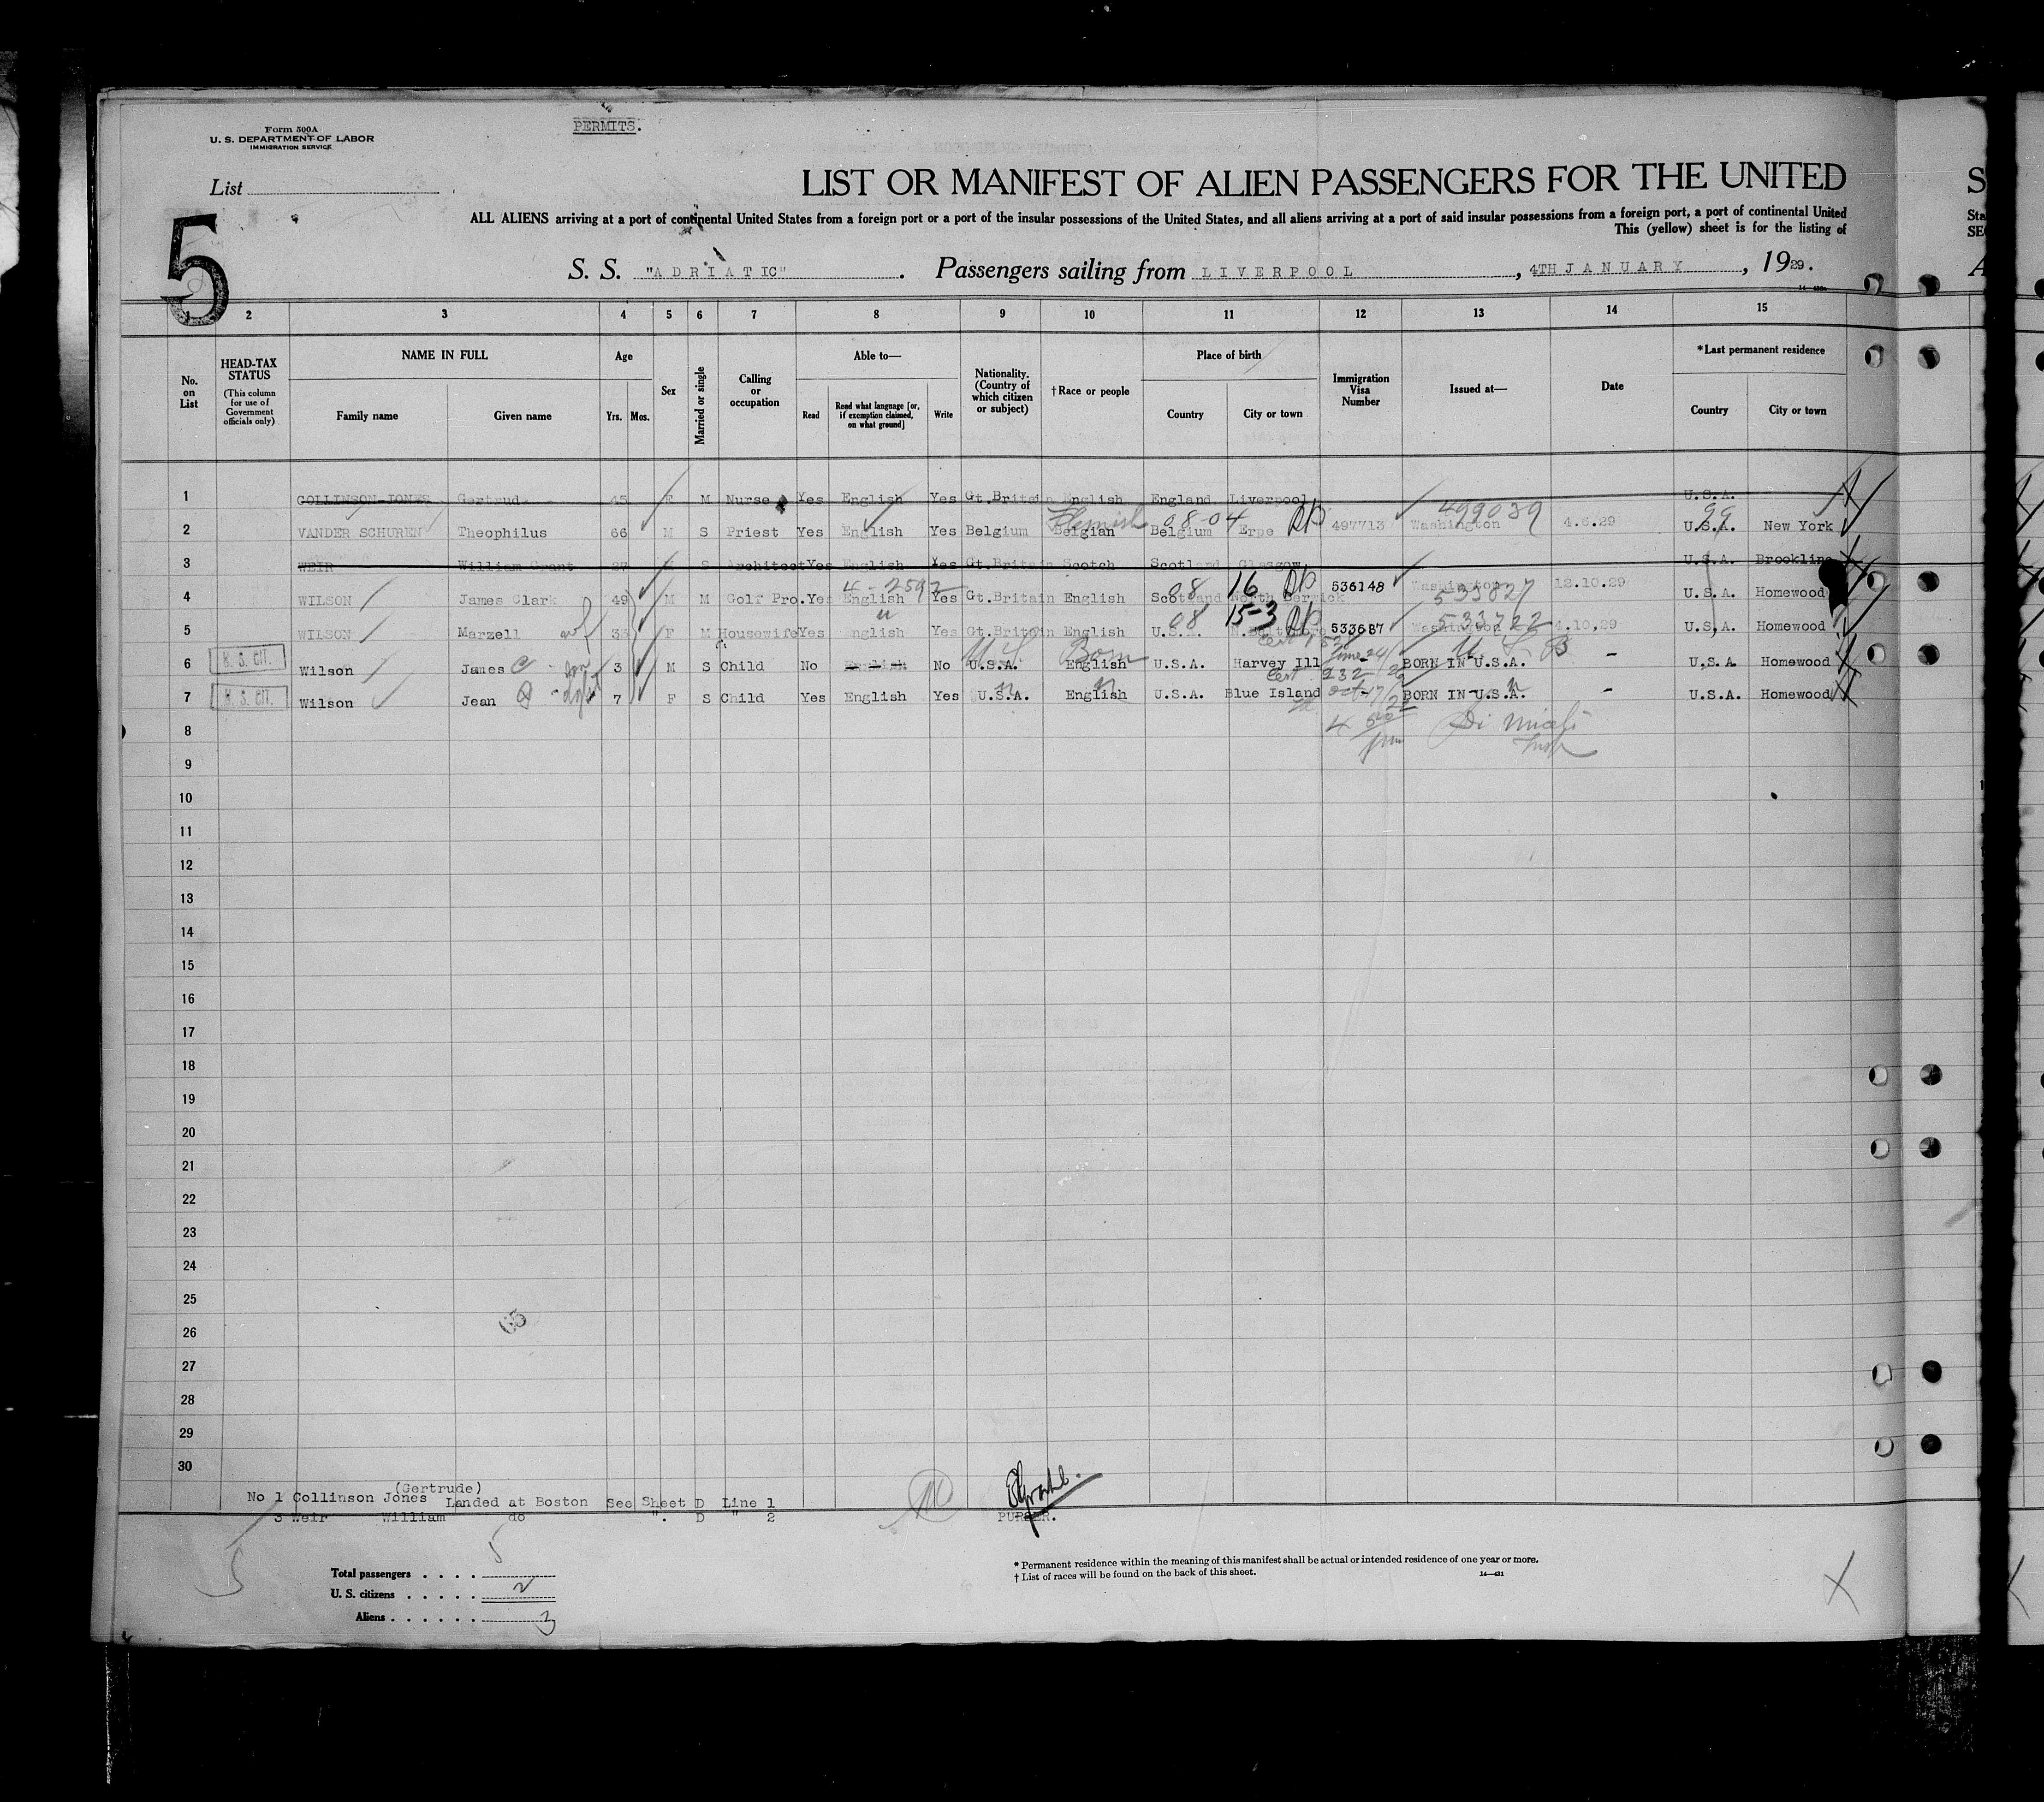 PERMITS.
Form 500A
U. S. DEPARTMENT OF LABOR
IMMIGRATION SERVICE
List
5
LIST OR MANIFEST OF ALIEN PASSENGERS FOR THE UNITED
ALL ALIENS arriving at a port of continental United States from a foreign port or a port of the insular possessions of the United States, and all aliens arriving at a port of said insular possessions from a foreign port, a port of continental United
This (yellow) sheet is for the listing of
S. S. "ADRIATIC". Passengers sailing from LIVERPOOL, 4TH JANUARY, 1929.
1 2 3 4 5 6 7 8 9 10 11 12 13 14 15
No. on List
HEAD-TAX STATUS (This column for use of Government officials only)
NAME IN FULL
Family name
Given name
Age
Yrs. Mos.
Sex
Married or single
Calling or occupation
Able to—
Read
Read what language [or, if exemption claimed, on what ground]
Write
Nationality. (Country of which citizen or subject)
† Race or people
Place of birth
Country
City or town
Immigration Visa Number
Issued at—
Date
*Last permanent residence
Country
City or town
1 COLLINSON-JONES Gertrude 45 F M Nurse Yes English Yes Gt.Britain English England Liverpool U.S.A.
2 VANDER SCHUREN Theophilus 66 M S Priest Yes English Yes Belgium Flemish Belgian Belgium 08-04 Erpe RP 497713 499039 Washington 4.6.29 99 U.S.A. New York
3 WEIR William Grant 37 S Architect Yes English Yes Gt.Britain Scotch Scotland Glasgow U.S.A. Brookline
4 WILSON James Clark 49 M M Golf Pro. Yes 4-2592 English Yes Gt.Britain English Scotland 08 16 RP North Berwick 536148 Washington 535827 12.10.29 U.S.A. Homewood
5 WILSON Marzell wf 35 F M Housewife Yes English Yes Gt.Britain English U.S.A. 08 15-3 RP 533687 Washington 533722 4.10.29 U.S.A. Homewood
6 U. S. CIT. Wilson James C son 3 M S Child No English No U.S.A. Born English U.S.A. Harvey Ill BORN IN U.S.A. - U.S.A. Homewood
7 U. S. CIT. Wilson Jean 7 F S Child Yes English Yes U.S.A. English U.S.A. Blue Island Cert. 232 Oct-17 BORN IN U.S.A. - U.S.A. Homewood
8
9
10
11
12
13
14
15
16
17
18
19
20
21
22
23
24
25
26
27
28
29
30
(Gertrude)
No 1 Collinson Jones Landed at Boston See Sheet D Line 1
3 Weir William do ". D " 2
PURSER.
5
Total passengers . . . . 5
U. S. citizens . . . . . 2
Aliens . . . . . . 3
* Permanent residence within the meaning of this manifest shall be actual or intended residence of one year or more.
† List of races will be found on the back of this sheet.
14—431